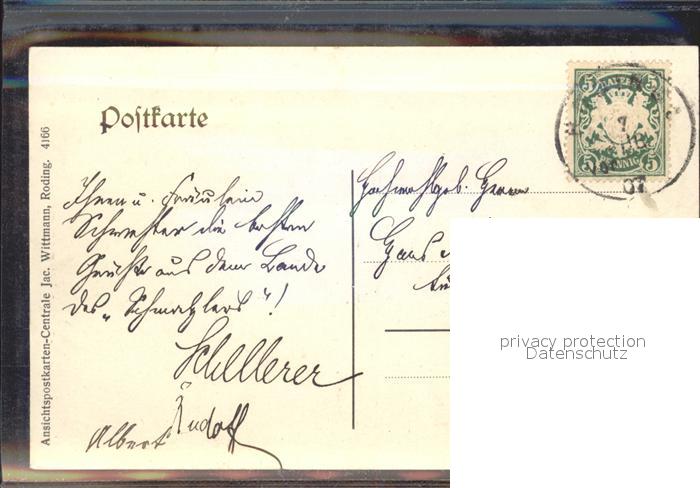 Postkarte
Ansichtspostkarten-Centrale Jac. Wittmann, Roding. 4166
5 BAYERN 5
5 PFENNIG 5
7
07
Ihnen u. Fräulein
Schwester die besten
Grüße aus dem Lande
des „Schmalzlers“!
Schllerer
Rudolf
Albert
Hochwohlgeb. Herrn
Hans
privacy protection
Datenschutz